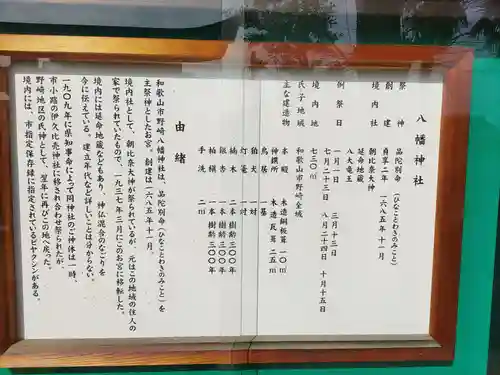 八幡神社
祭神 品陀別命(ひなことわきのみこと)
創建 貞享二年 一六八五年十一月
境内社 朝比奈大神
延命地蔵
八大竜王
例祭日 一月一日 三月十三日
七月二十三日 八月二十四日 十月十五日
境内地 七三〇㎡
氏子地域 和歌山市野崎全域
主な建造物
本殿 木造銅板葺 一〇㎡
神饌所 木造瓦葺 二五㎡
鳥居 一基
狛犬 一対
灯篭 一対
楠木 二本 樹齢三〇〇年
銀杏 一本 樹齢三〇〇年
柏槇 一本 樹齢三〇〇年
手洗 二㎡
由緒
和歌山市野崎八幡神社は、品陀別命(ひなことわきのみこと)を
主祭神としたお宮。創建は一六八五年十一月。
境内社として、朝比奈大神が祭られているが、元はこの地域の住人の
家で祭られていたもので、一九三七年三月にこのお宮に移転した。
境内には延命地蔵などもあり、神仏混合のなごりを
今に伝えている。建立年代など詳しいことは分からない。
一九〇九年に県知事命によって同神社のご神体は一時、
市小路の伊久比売神社に移され合わせ祭られたが、
野崎地区の氏神として、翌年に再びこの地へ戻った。
境内には、市指定保存録に指定されているビヤクシンがある。